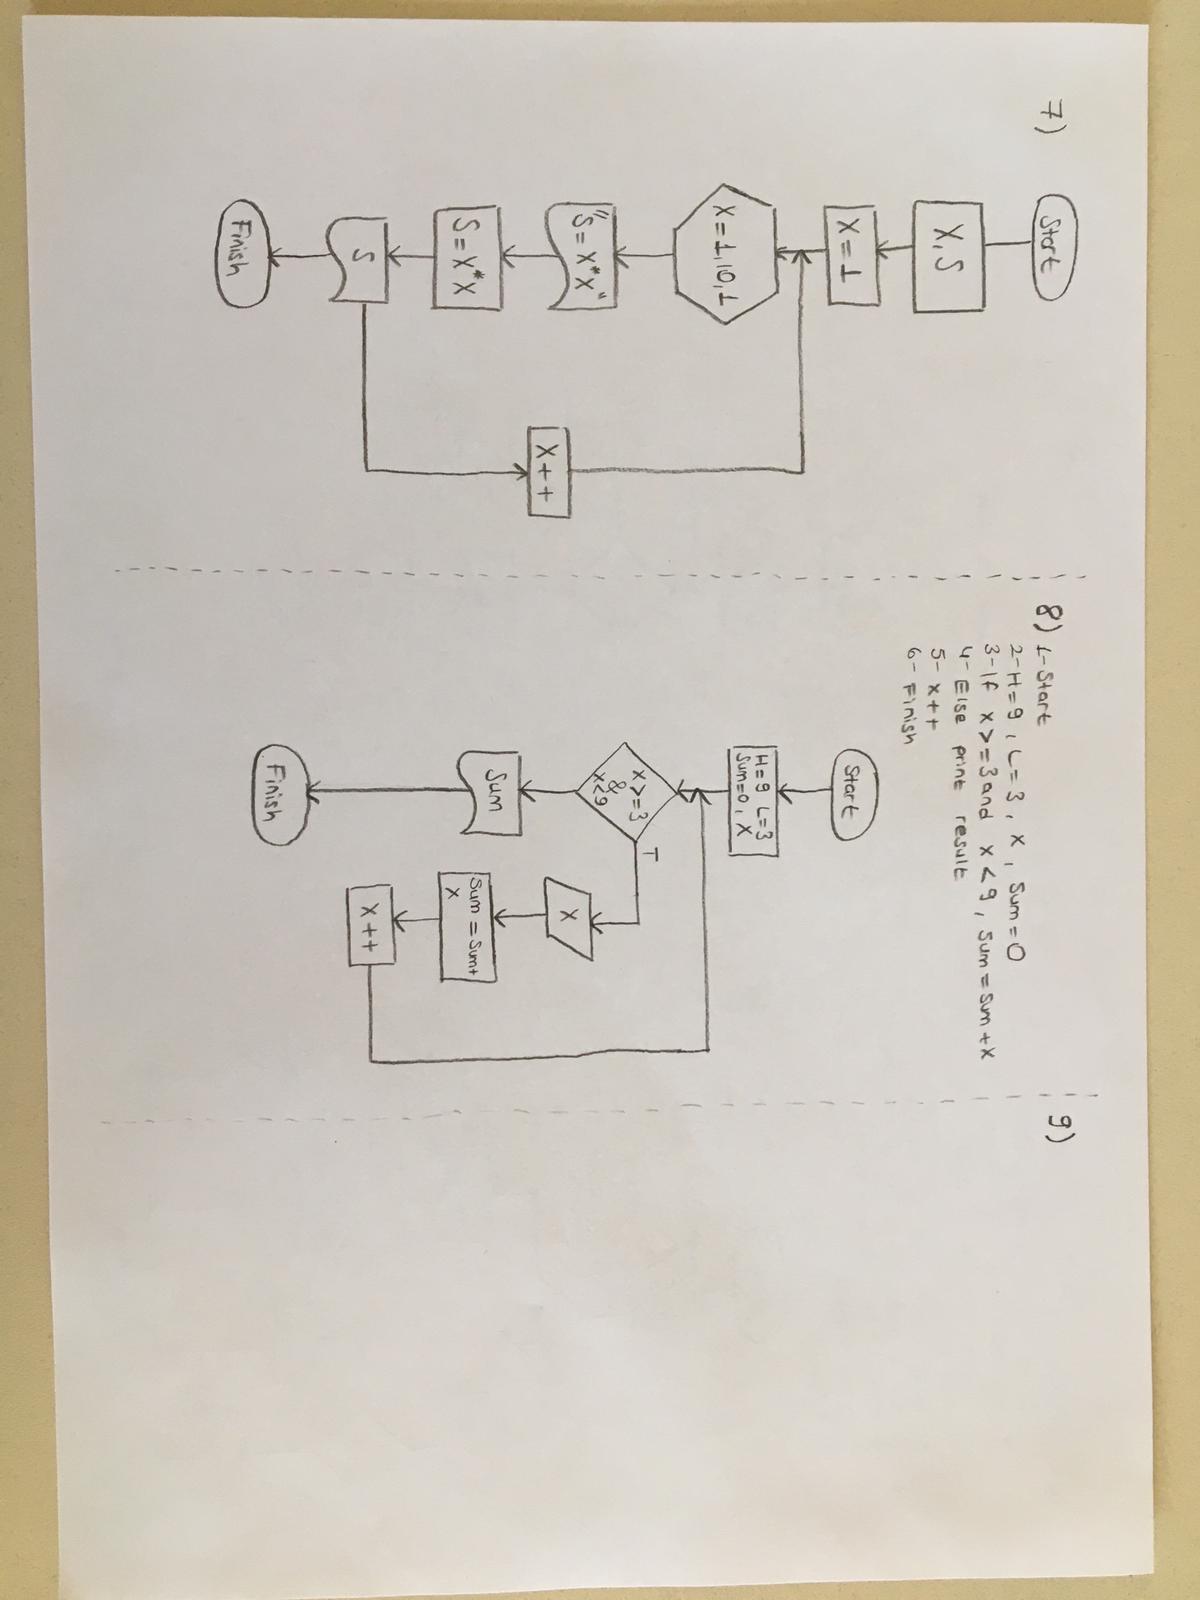 7)
Start
X, S
X = 1
X = 1, 10, 1
"S = X*X"
S = X*X
S
X++
Finish
8) 1- Start
2- H=9, L=3, X, Sum=0
3- If x >= 3 and x < 9, Sum = Sum + X
4- Else print result
5- x++
6- Finish
Start
H=9 L=3
Sum=0, X
x >= 3
&
x<9
T
X
Sum = Sum+
X
X++
Sum
Finish
9)